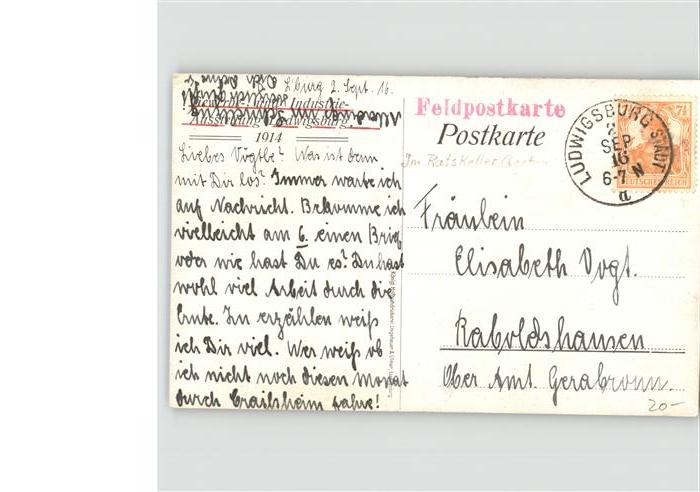 Lburg 2. Sept. 16.
Gewerbe- und Industrie-
Ausstellung Ludwigsburg
1914
Liebes Vögtle! Was ist denn
mit Dir los? Immer warte ich
auf Nachricht. Bekomme ich
vielleicht am 6. einen Brief
oder wie hast Du es? Du hast
wohl viel Arbeit durch die
Ernte. Zu erzählen weiß
ich Dir viel. Wer weiß ob
ich nicht noch diesen Monat
durch Crailsheim fahre!
Feldpostkarte
Postkarte
Im Ratskeller
LUDWIGSBURG STADT
2
SEP
16
6-7 N
a
7½
DEUTSCHES REICH
Fräulein
Elisabeth Vogt.
Raboldshausen
Ober Amt Gerabronn.
20-